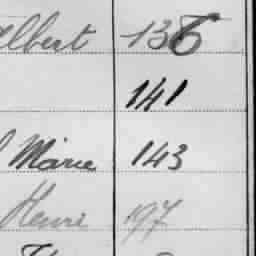 Albert 136
141
Marie 143
Henri 197